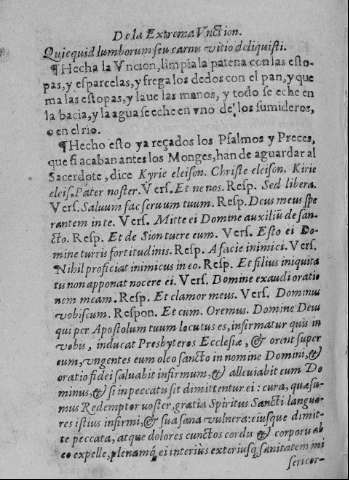 De la Extrema Vnction.
Quicquid lumborum seu carnis vitio deliquisti.
¶Hecha la Vncion, limpia la patena con las esto-
pas, y esparcelas, y frega los dedos con el pan, y que
ma las estopas, y laue las manos, y todo se eche en
la bacia, y la agua se eche en vno de los sumideros,
o en el rio.
¶Hecho esto ya reçados los Psalmos y Preces,
que si acaban antes los Monges, han de aguardar al
Sacerdote, dice Kyrie eleison. Christe eleison. Kirie
eleis. Pater noster. Vers. Et ne nos. Resp. Sed libera.
Vers. Saluum fac seruum tuum. Resp. Deus meus spe
rantem in te. Vers. Mitte ei Domine auxiliū de san-
cto. Resp. Et de Sion tuere eum. Vers. Esto ei Do-
mine turris fortitudinis. Resp. A facie inimici. Vers.
Nihil proficiat inimicus in eo. Resp. Et filius iniquita
tu non apponat nocere ei. Vers. Domine exaudi oratio
nem meam. Resp. Et clamor meus. Vers. Dominus
vobiscum. Respon. Et cum. Oremus. Domine Deus
qui per Apostolum tuum locutus es, infirmatur quis in
vobis, inducat Presbyteros Ecclesiæ, & orent super
eum, vngentes eum oleo sancto in nomine Domini, &
oratio fidei saluabit infirmum, & alleuiabit eum Do
minus, & si in peccatu sit dimittentur ei: cura, quæsu-
mus Redemptor noster, gratia Spiritus Sancti languo
res istius infirmi, & sua sana vulnera: eiusque dimit-
te peccata, atque dolores cunctos cordis & corporis ab
eo expelle, plenamq, ei interius exteriusq, sanitatem mi
sericor-